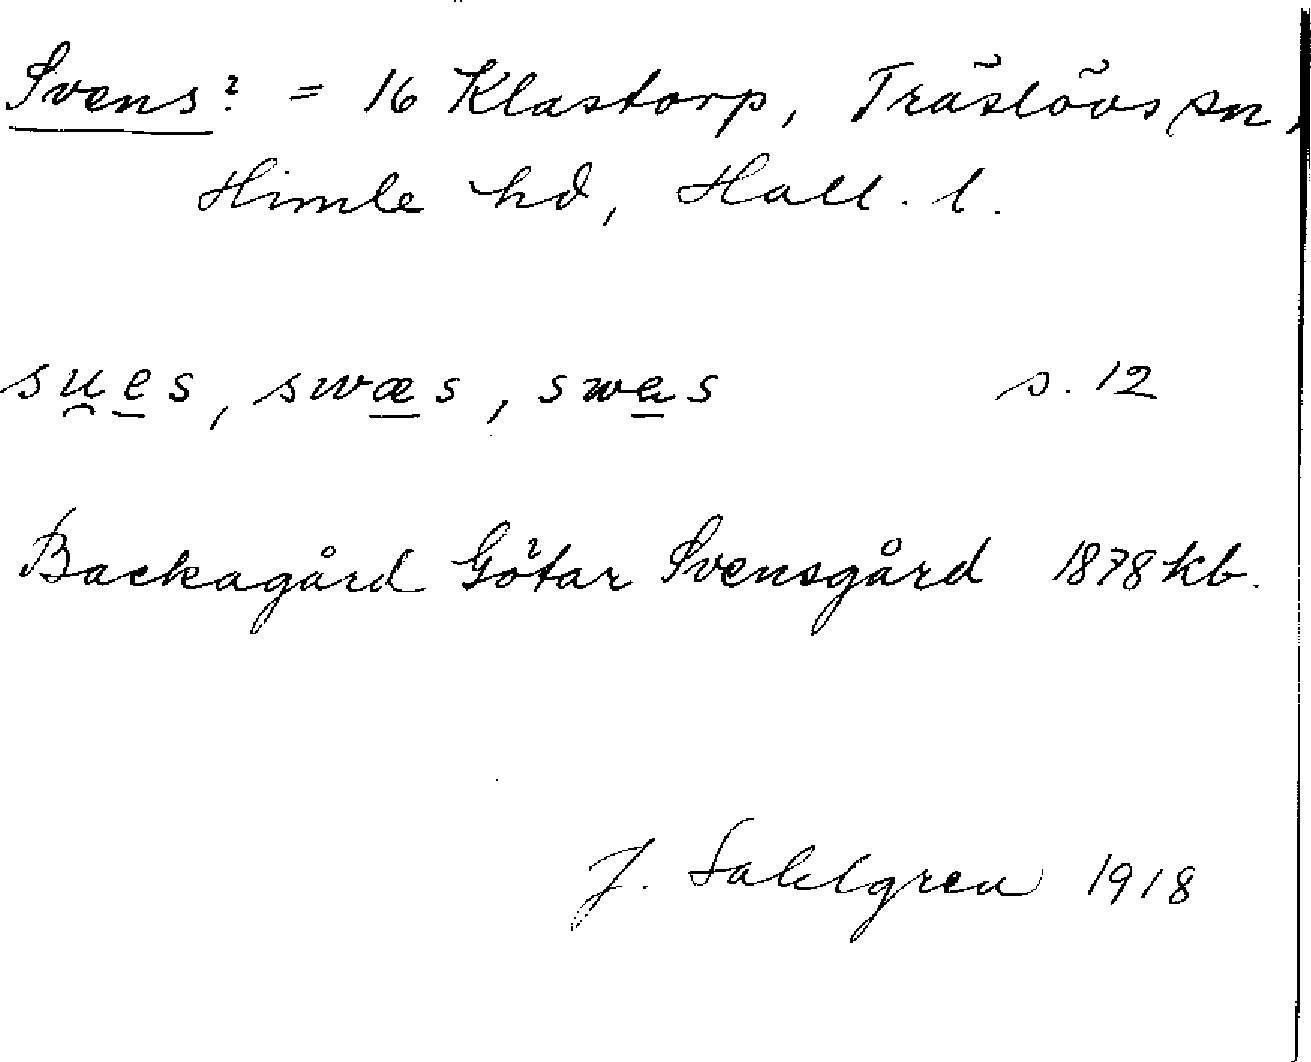 Svens? = 16 Klastorp, Träslövs sn,
Himle hd, Hall. l.
su̯e̲s, swæ̲s, swa̲s s. 12
Backagård Götar Svensgård 1878 kb.
J. Sahlgren 1918